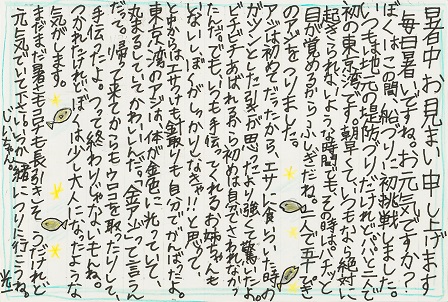 暑中お見まい申し上げます
毎日暑いですね。お元気ですか？
ぼくはこの間、船づりに初挑戦しました。
いつもは地元の堤防づりだけどパパと二人で
初の東京湾です。朝早くて、いつもなら絶対に
起きられないような時間でもその時はパッと
目が覚めるからふしぎだね。二人で五十ぴき
のアジをつりました。
アジは初めてだったから、エサに食いついた時の
ガツンとした引きが思ったより強くて驚いたよ。
ビチビチあばれるから初めは自分でさわれなかっ
たんだ。でも、いつも手伝ってくれるお姉ちゃんも
いないしぼくがしっかりしなきゃ!!と思って、
と中からはエサつけも金取りも自分でがんばったよ。
東京湾のアジは体が金色に光っていて、
丸まるしていてかわいいんだ。金アジって言うん
だって。帰って来てからもウロコを取ったりして、
手伝ったよ。つって終わりじゃないもんね。
つかれたけれどぼくは少し大人になったような
気がします。
まだまだ暑さもコロナも長引きそうだけれど
元気でいてね。いつか一緒につりに行こうね。
じいちゃん。
光